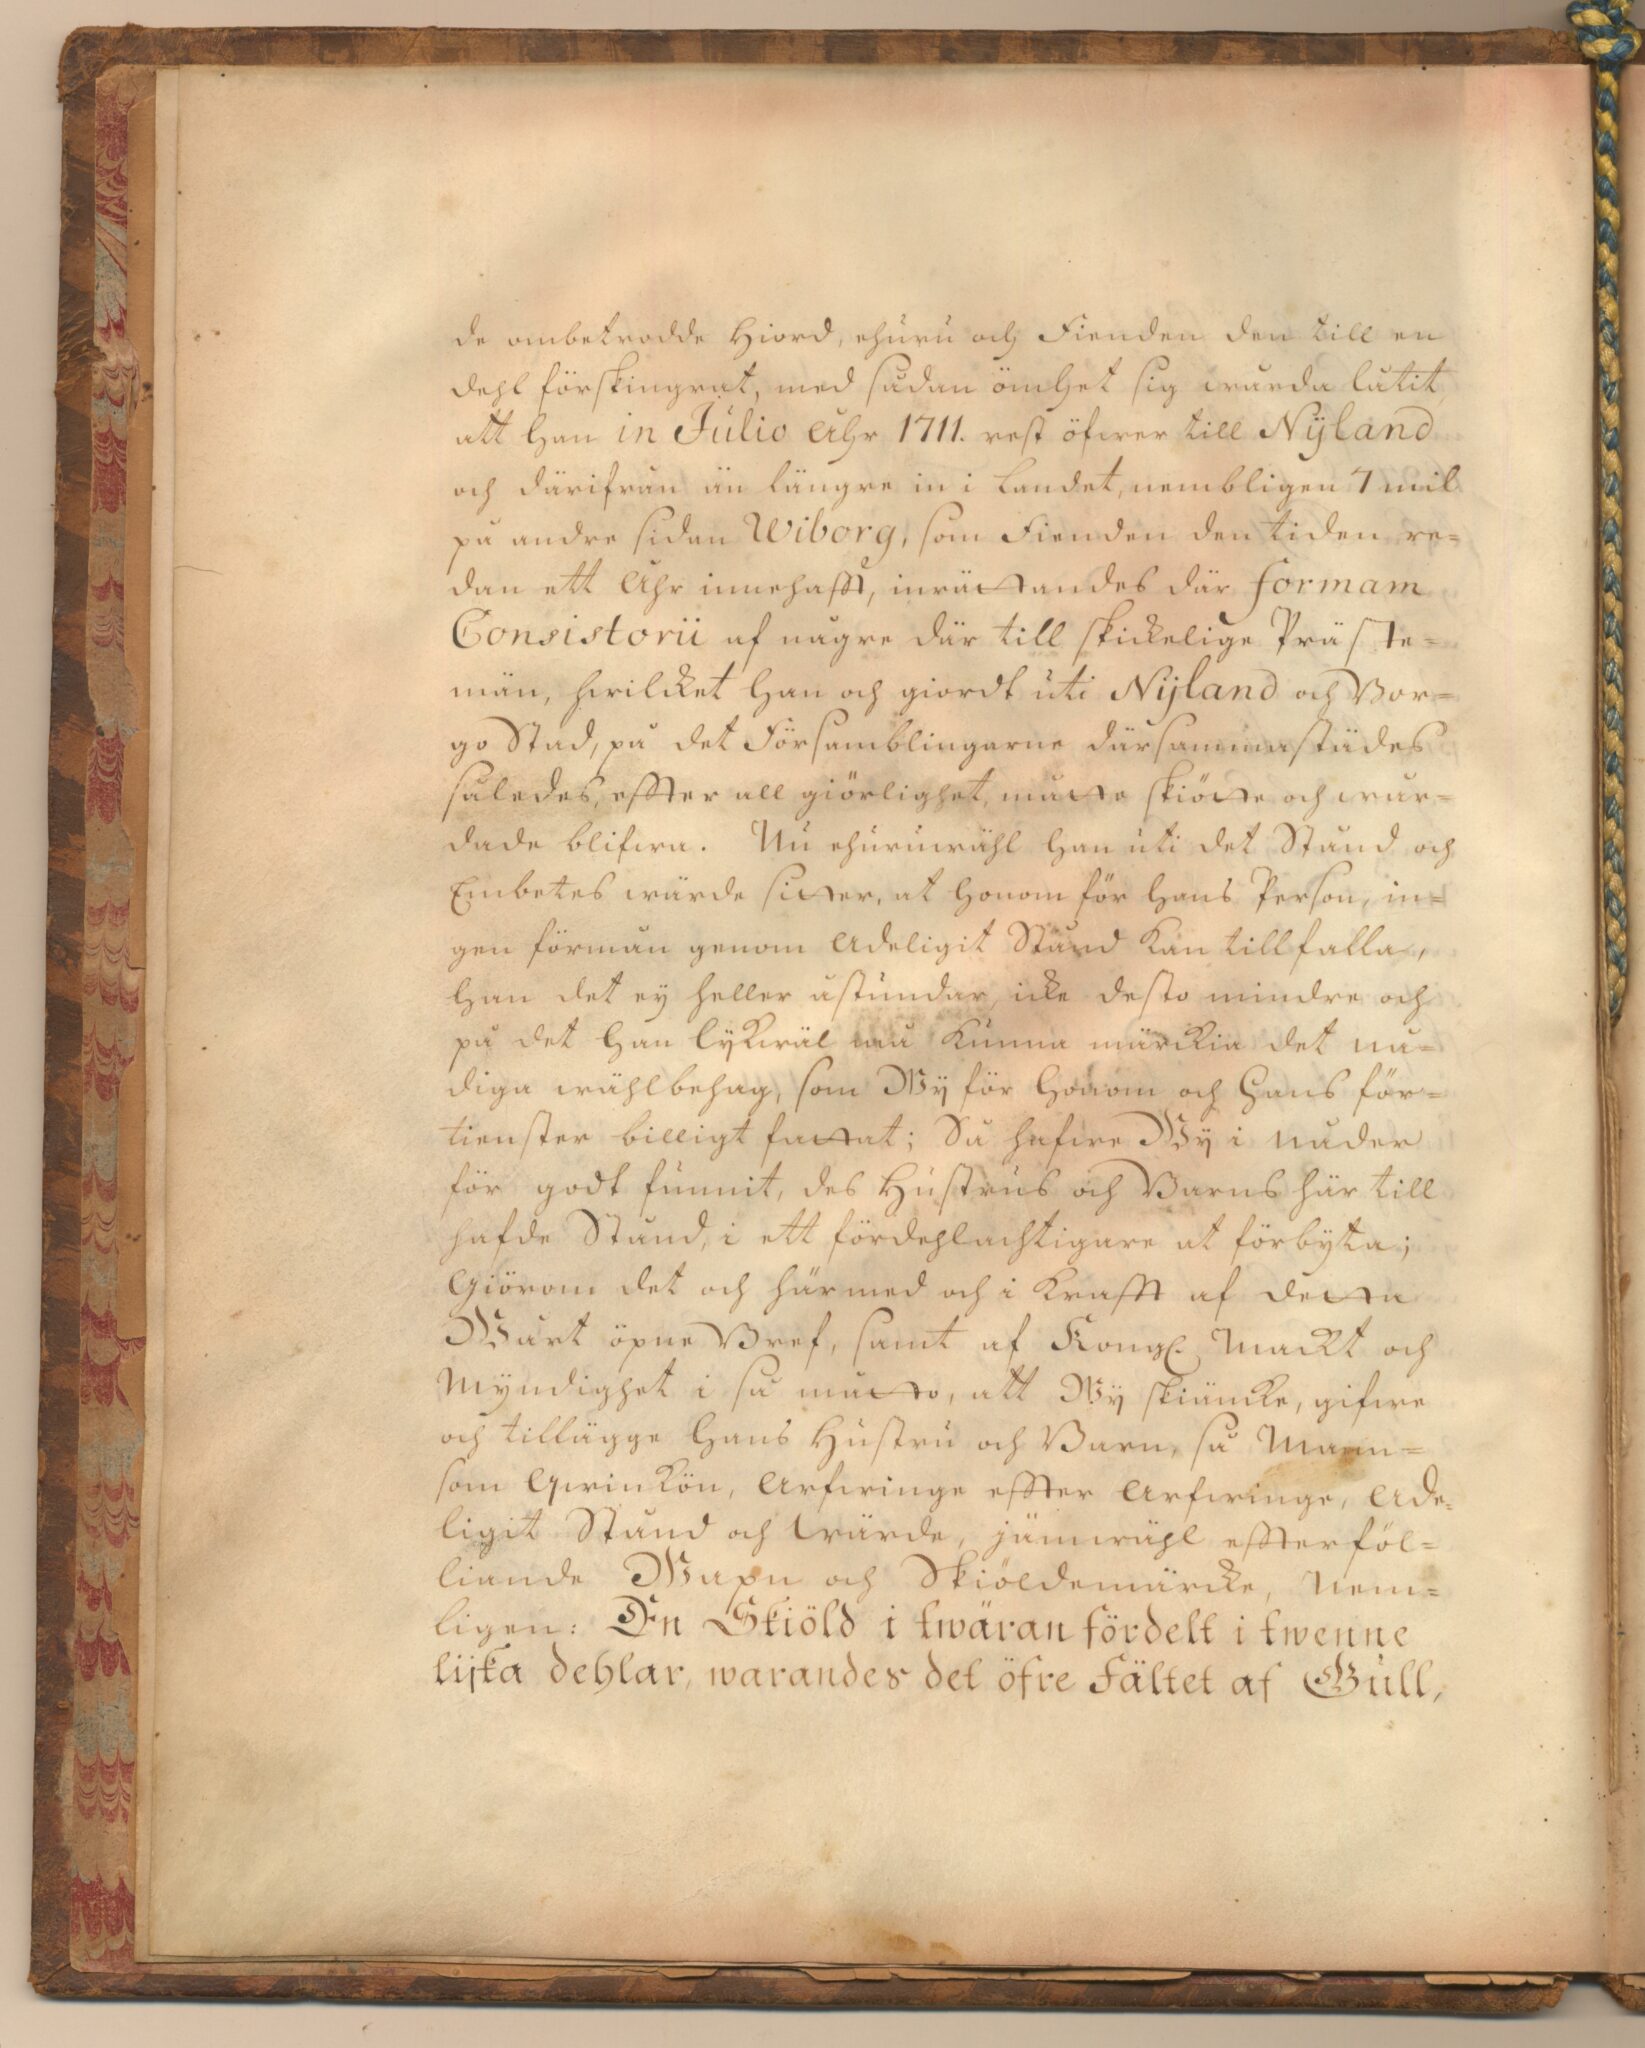 de ombetrodde Hiord, ehuru och Fienden den till en
dehl förskingrat, med sådan ömhet sig wårda låtit,
att Han in Julio Ahr 1711. rest öfwer till Nÿland
och därifrån än längre in i Landet, nembligen 7 mil
på andre sidan Wiborg, som Fienden den tiden re=
dan ett Ahr innehafft, inrättandes där formam
Consistorii af någre där till skickelige Präste=
män, hwilcket Han och giordt uti Nÿland och Bor=
go Stad, på det Församblingarne därsammastädes
således, effter all giörlighet, måtte skiötte och wår=
dade blifwa. Nu ehuruwähl Han uti det Stånd och
Embetes wärde sitter, at Honom för Hans Person, in=
gen förmån genom Adeligit Stånd kan tillfalla,
Han det ey heller åstundar, icke desto mindre och
på det Han lykwäl må kunna märckia det nå=
diga wählbehag, som Wÿ för Honom och Hans för=
tienster billigt fattat; Så hafwe Wÿ i nåder
för godt funnit, des Hustrus och Barns här till
hafde Stånd, i ett fördehlachtigare at förbÿta;
Giörom det och härmed och i Krafft af detta
Wårt öpne Bref, samt af Kongl. Mackt och
Mÿndighet i så måtto, att Wÿ skiäncke, gifwe
och tillägge Hans Hustru och Barn, så Mann=
som Qwinkön, Arfwinge effter Arfwinge, Ade=
ligit Stånd och wärde, jämwähl effterföl=
liande Wapn och Skiöldemärcke, Nem=
ligen: En Skiöld i twäran fördelt i twenne
lijka dehlar, warandes det öfre Fältet af Gull,